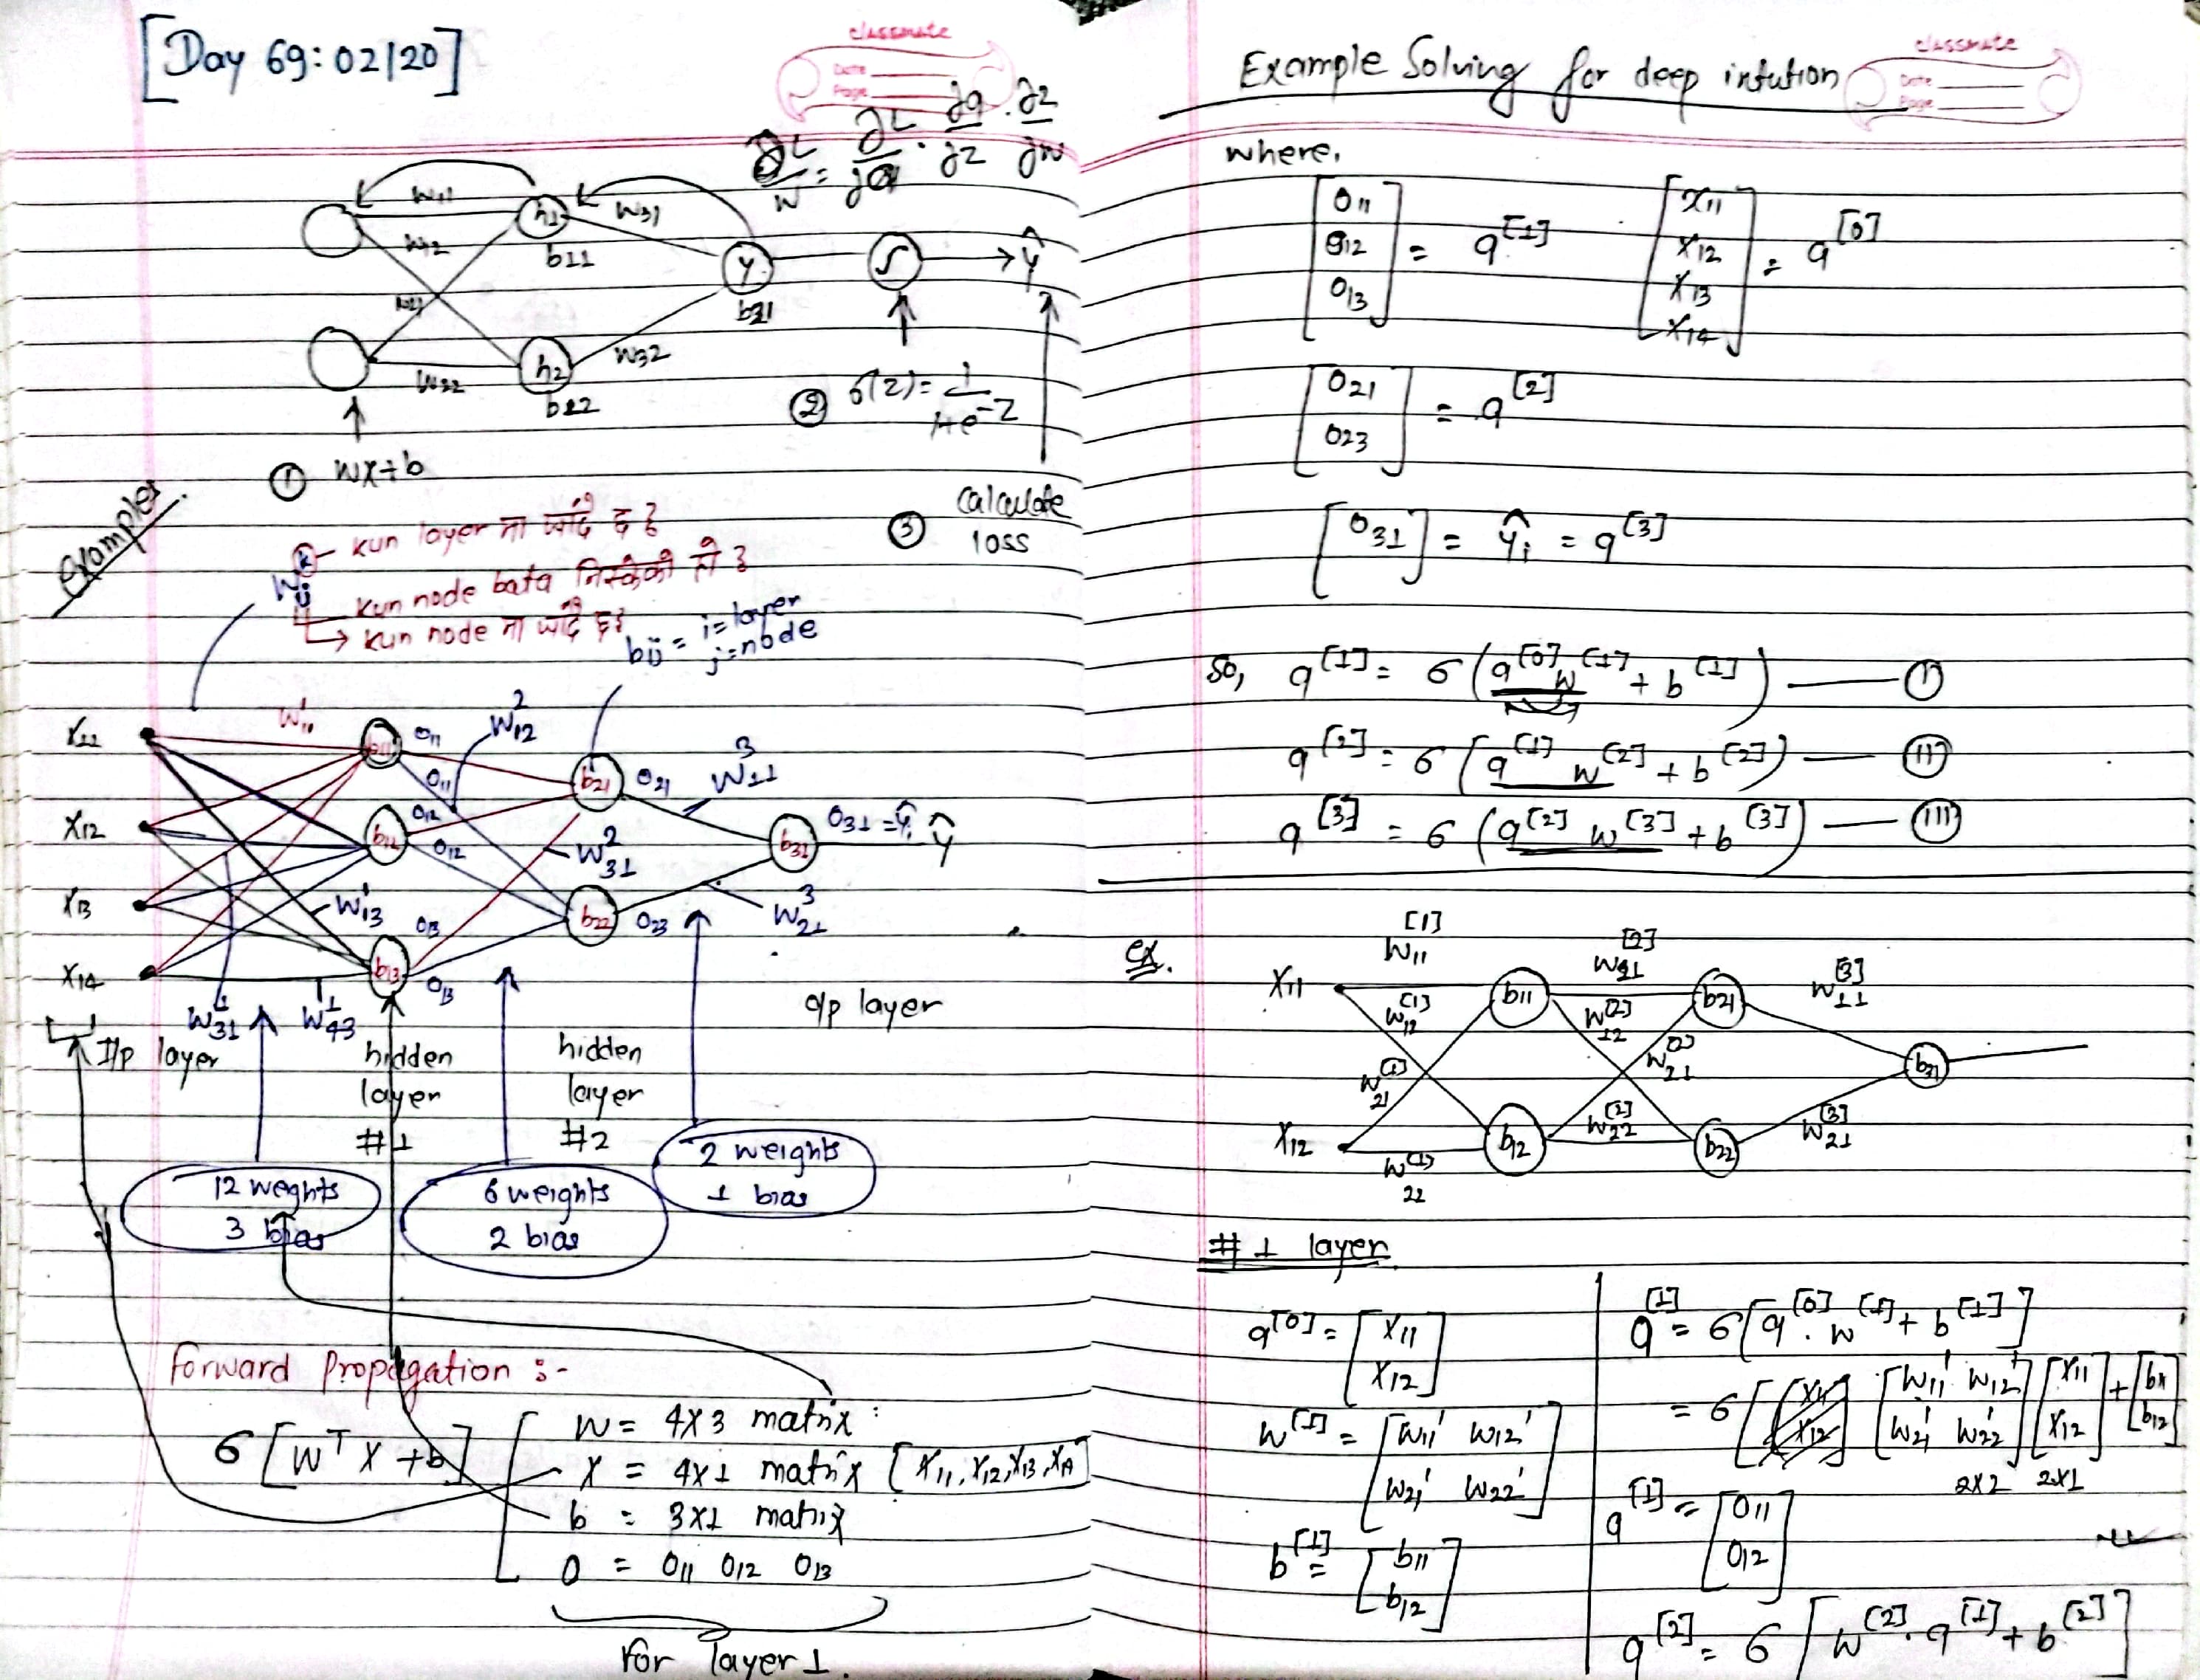 [Day 69: 02/20]
classmate
Date
Page
∂L/w = ∂L/∂a · ∂a/∂z · ∂z/∂w
w11
w12
w21
w22
h1
b11
h2
b22
w31
w32
y
b31
ŷ
① wx+b
② σ(z) = 1/1+e^-z
③ calculate loss
examples.
W^k_ij
k - kun layer मा जाँदै छ ?
kun node bata निस्केको हो ?
→ kun node मा जाँदै छ ?
bij = i=layer
j=node
X11
X12
X13
X14
W^1_11
b11
b12
b13
O11
O11
O12
O12
O13
O13
W^2_12
W^1_13
W^1_31
W^1_43
b21
b22
O21
O23
W^2_31
W^3_11
W^3_21
b31
O31 = ŷi
ŷ
I/p layer
hidden layer #1
hidden layer #2
o/p layer
12 weghts
3 bias
6 weights
2 bias
2 weights
1 bias
Forward Propagation :-
σ[W^T X + b]
W = 4x3 matrix :
X = 4x1 matrix [X11, X12, X13, X14]
b = 3x1 matrix
O = O11 O12 O13
For layer 1.
Example Solving for deep intution
classmate
Date
Page
where,
[O11 O12 O13] = a^[1]
[X11 X12 X13 X14] = a^[0]
[O21 O23] = a^[2]
[O31] = ŷi = a^[3]
So, a^[1] = σ(a^[0] w^[1] + b^[1]) — ①
a^[2] = σ[a^[1] w^[2] + b^[2]) — ⑪
a^[3] = σ(a^[2] w^[3] + b^[3]) — ⑪I
ex.
X11
X12
W11^[1]
W12^[1]
W21^[1]
W22^[1]
b11
b12
W12^[2]
W21^[2]
W22^[2]
b21
b22
W11^[3]
W21^[3]
b31
#1 layer
a^[0] = [X11 X12]
W^[1] = [W11' W12' W21' W22']
b^[1] = [b11 b12]
a^[1] = σ[a^[0] . w^[1] + b^[1]]
= σ[ [W11' W12' W21' W22'] [X11 X12] + [b11 b12]
2x2 2x1
a^[1] = [O11 O12]
a^[2] = σ[W^[2] . a^[1] + b^[2]]